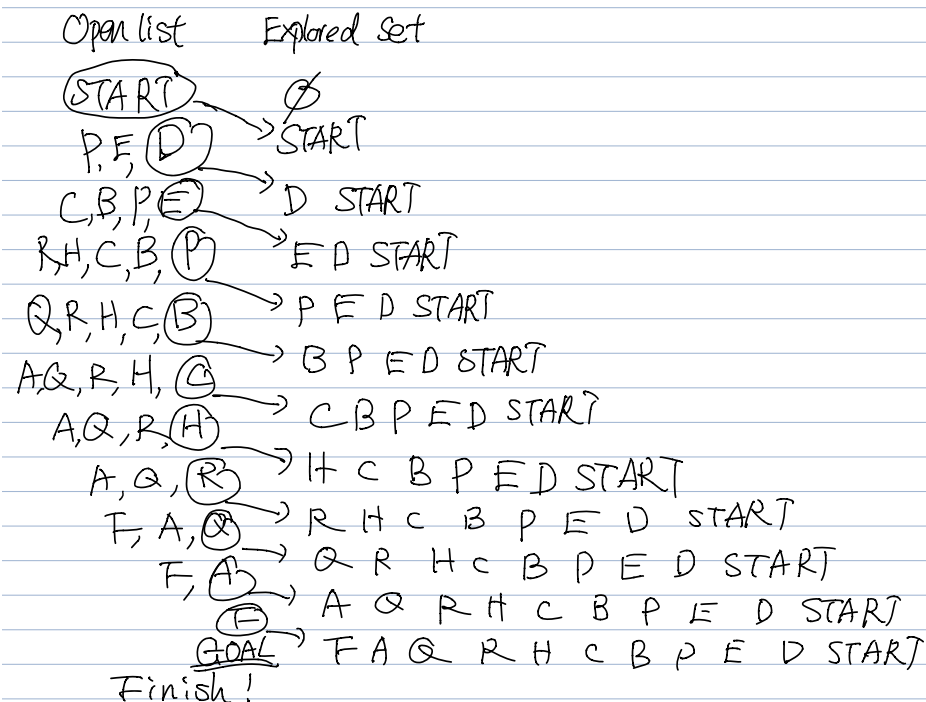 Open list Explored set
START Ø
P, E, D START
C, B, P, E D START
R, H, C, B, P E D START
Q, R, H, C, B P E D START
A, Q, R, H, C B P E D START
A, Q, R, H C B P E D START
A, Q, R H C B P E D START
F, A, Q R H C B P E D START
F, A Q R H C B P E D START
F A Q R H C B P E D START
GOAL F A Q R H C B P E D START
Finish!